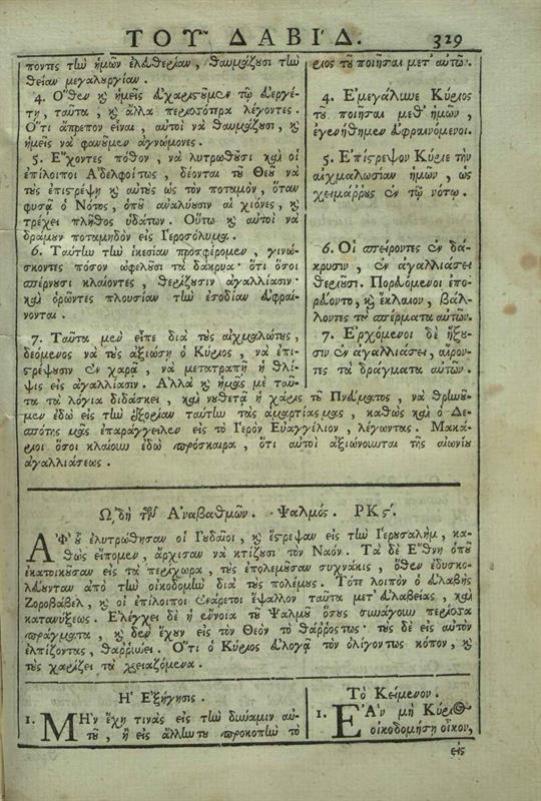 ΤΟΥ ΔΑΒΙΔ. 329
ποντες τὴν ἡμῶν ἐλευθερίαν, θαυμάζουσι τὴν
θείαν μεγαλουργίαν.
4. Ὅθεν καὶ ἡμεῖς εὐχαριστοῦμεν τῷ εὐεργέ-
τῃ, ταῦτα, καὶ ἄλλα περισσότερα λέγοντες.
Ὅτι ἄπρεπον εἶναι, αὐτοὶ νὰ θαυμάζουσι, καὶ
ἡμεῖς νὰ φανοῦμεν ἀγνώμονες.
5. Ἔχοντες πόθον, νὰ λυτρωθοῦσι καὶ οἱ
ἐπίλοιποι Ἀδελφοίτως, δέονται τοῦ Θεοῦ νὰ
τοὺς ἐπιστρέψῃ καὶ αὐτοὺς ὡς τὸν ποταμὸν, ὅταν
φυσᾷ ὁ Νότος, ὁποῦ ἀναλύουσιν αἱ χιόνες, καὶ
τρέχει πλῆθος ὑδάτων. Οὕτω καὶ αὐτοὶ νὰ
δράμουν ποταμηδὸν εἰς Ἱεροσόλυμα.
6. Ταύτην τὴν ἱκεσίαν προσφέρομεν, γινώ-
σκοντες πόσον ὠφελοῦσι τὰ δάκρυα· ὅτι ὅσοι
σπέρνουσι κλαίοντες, θερίζουσιν ἀγαλλίασιν·
καὶ ὁρῶντες πλουσίαν τὴν ἐσοδίαν εὐφραί-
νονται.
7. Ταῦτα μὲν εἶπε διὰ τοὺς αἰχμαλώτους,
δεόμενος νὰ τοὺς ἀξιώσῃ ὁ Κύριος, νὰ ἐπι-
στρέψουσιν ἐν χαρᾷ, νὰ μετατραπῇ ἡ θλί-
ψις εἰς ἀγαλλίασιν. Ἀλλὰ καὶ ἡμᾶς μὲ τοῦ-
τα τὰ λόγια διδάσκει, καὶ νουθετᾷ ἡ χάρις τοῦ Πνεύματος, νὰ θρηνοῦ-
μεν ἐδῶ εἰς τὴν ἐξορίαν ταύτην τὰς ἁμαρτίας μας, καθὼς καὶ ὁ Δε-
σπότης μᾶς ἐπαράγγειλεν εἰς τὸ Ἱερὸν Εὐαγγέλιον, λέγωντας. Μακά-
ριοι ὅσοι κλαίουν ἐδῶ πρόσκαιρα, ὅτι αὐτοὶ ἀξιώνουνται τῆς αἰωνίου
ἀγαλλιάσεως.
ριος τοῦ ποιῆσαι μετ' αὐτῶν.
4. Ἐμεγάλυνε Κύριος
τοῦ ποιῆσαι μεθ' ἡμῶν,
ἐγενήθημεν εὐφραινόμενοι.
5. Ἐπίστρεψον Κύριε τὴν
αἰχμαλωσίαν ἡμῶν, ὡς
χειμάῤῥους ἐν τῷ νότῳ.
6. Οἱ σπείροντες ἐν δά-
κρυσιν, ἐν ἀγαλλιάσει
θεριοῦσι. Πορευόμενοι ἐπο-
ρεύοντο, καὶ ἔκλαιον, βάλ-
λοντες τὰ σπέρματα αὐτῶν.
7. Ἐρχόμενοι δὲ ἥξου-
σιν ἐν ἀγαλλιάσει, αἴρον-
τες τὰ δράγματα αὐτῶν.
ᾨδὴ τῶν Ἀναβαθμῶν. Ψαλμός. ΡΚϛ'.
ΑΦ' οὗ ἐλυτρώθησαν οἱ Ἰουδαῖοι, καὶ ἔστρεψαν εἰς τὴν Ἱερουσαλὴμ, κα-
θὼς εἴπομεν, ἄρχισαν νὰ κτίζουσι τὸν Ναόν. Τὰ δὲ Ἔθνη ὁποῦ
ἐκατοικοῦσαν εἰς τὰ περίχωρα, τοὺς ἐπολεμοῦσαν συχνάκις, ὅθεν ἐδυσκο-
λεύονταν ἀπὸ τὴν οἰκοδομὴν διὰ τοὺς πολέμους. Τότε λοιπὸν ὁ εὐλαβὴς
Ζοροβάβελ, καὶ οἱ ἐπίλοιποι ἐνάρετοι ἔψαλλον ταῦτα μετ' εὐλαβείας, καὶ
κατανύξεως. Ἐλέγχει δὲ ἡ ἔννοια τοῦ Ψαλμοῦ ὅσους συνάγουν περίσσια
πράγματα, καὶ δὲν ἔχουν εἰς τὸν Θεὸν τὸ θάῤῥος τως· τοὺς δὲ εἰς αὐτὸν
ἐλπίζοντας, θαῤῥύνει. Ὅτι ὁ Κύριος εὐλογᾷ τὸν ὀλίγον τως κόπον, καὶ
τοὺς χαρίζει τὰ χρειαζόμενα.
Ἡ Ἐξήγησις.
1. ΜΗν ἔχῃ τινὰς εἰς τὴν δύναμιν αὐ-
τοῦ, ἢ εἰς ἄλλην του προκοπὴν τὸ
Τὸ Κείμενον.
1. ΕΑν μὴ Κύριος
οἰκοδομήσῃ οἶκον,
εἰς